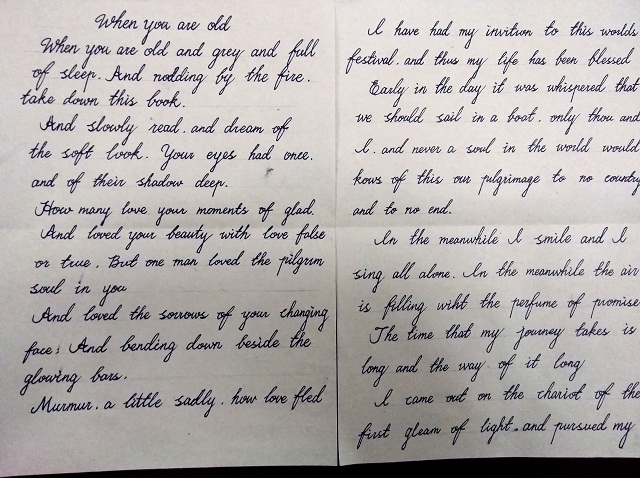 When you are old
When you are old and grey and full
of sleep. And nodding by the fire.
take down this book.
And slowly read. and dream of
the soft look. Your eyes had once.
and of their shadow deep.
How many love your moments of glad.
And loved your beauty with love false
or true. But one man loved the pilgrim
soul in you
And loved the sorrows of your changing
face: And bending down beside the
glowing bars.
Murmur. a little sadly. how love fled
I have had my invition to this worlds
festival. and thus my life has been blessed
Early in the day it was whispered that
we should sail in a boat. only thou and
I. and never a soul in the world would
kows of this our pilgrimage to no country
and to no end.
In the meanwhile I smile and I
sing all alone. In the meanwhile the air
is filling wiht the perfume of promise
The time that my journey takes is
long and the way of it long
I came out on the chariot of the
first gleam of light. and pursued my